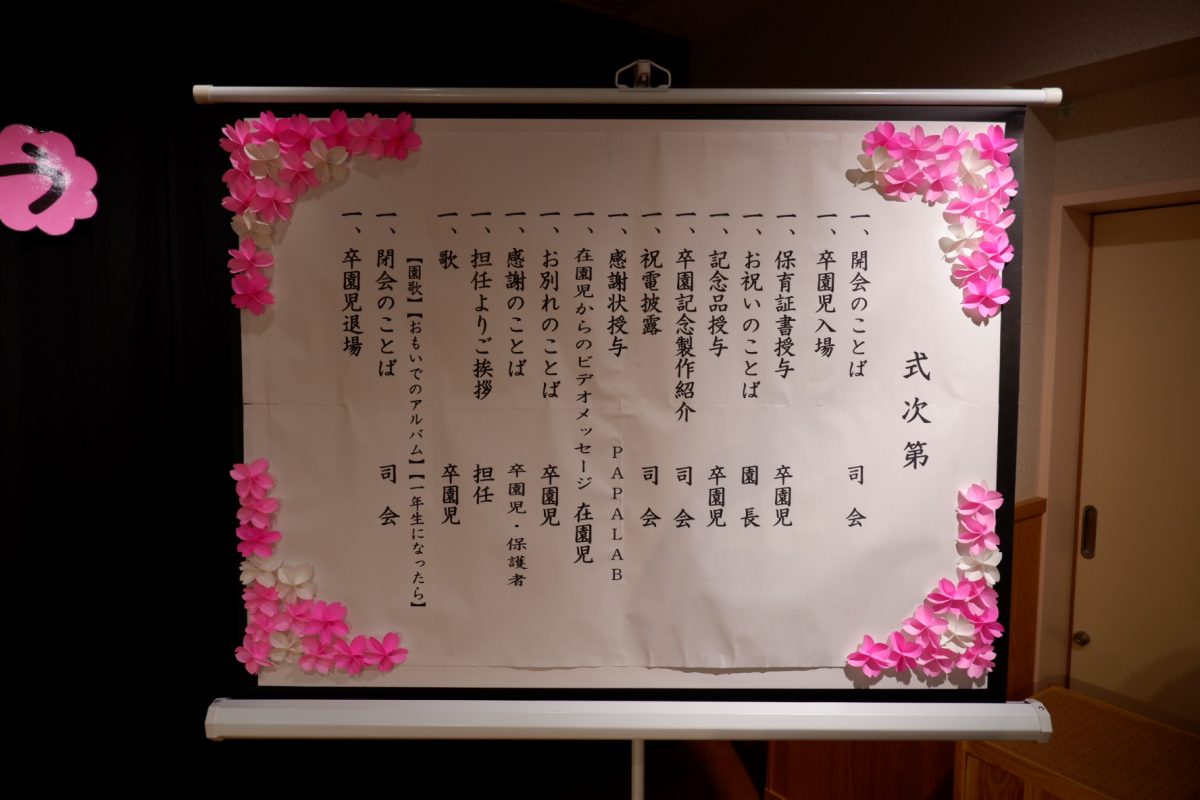 式次第
一、開会のことば 司会
一、卒園児入場
一、保育証書授与 卒園児
一、お祝いのことば 園長
一、記念品授与 卒園児
一、卒園記念製作紹介 司会
一、祝電披露 司会
一、感謝状授与 PAPALAB
一、在園児からのビデオメッセージ 在園児
一、お別れのことば 卒園児
一、感謝のことば 卒園児・保護者
一、担任よりご挨拶 担任
一、歌 卒園児
【園歌】【おもいでのアルバム】【一年生になったら】
一、閉会のことば 司会
一、卒園児退場
う